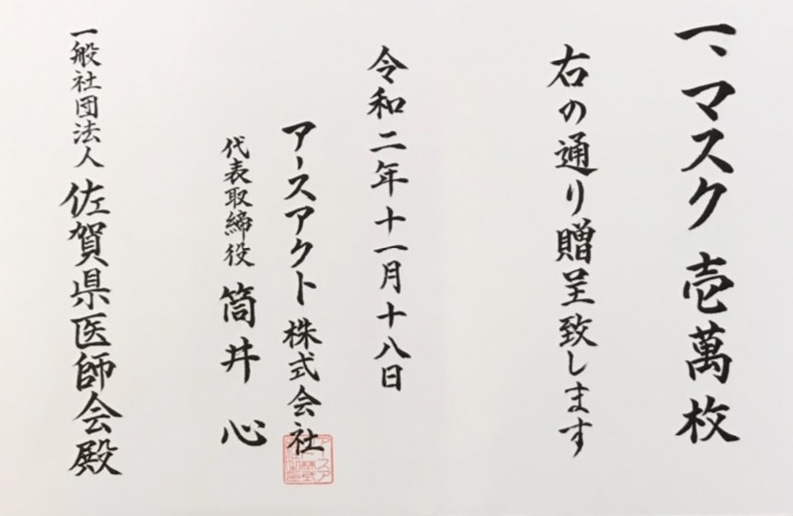 一、マスク 壱萬枚
右の通り贈呈致します
令和二年十一月十八日
アースアクト株式会社
代表取締役 筒井 心
一般社団法人 佐賀県医師会殿